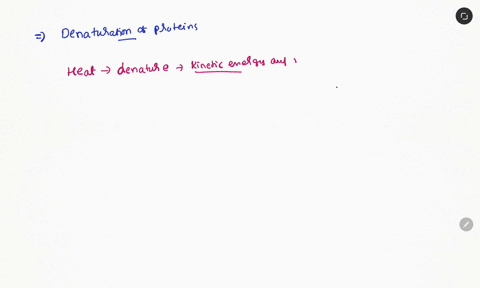 ⇒) Denaturation of proteins
Heat → denature → kinetic energy